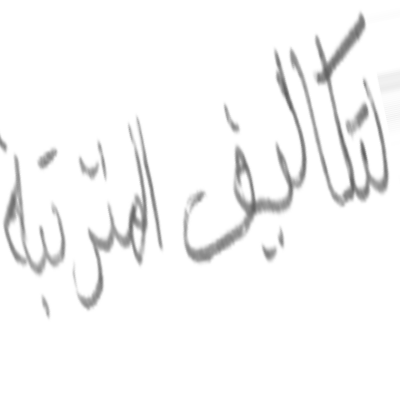 لتكاليف المترتبة